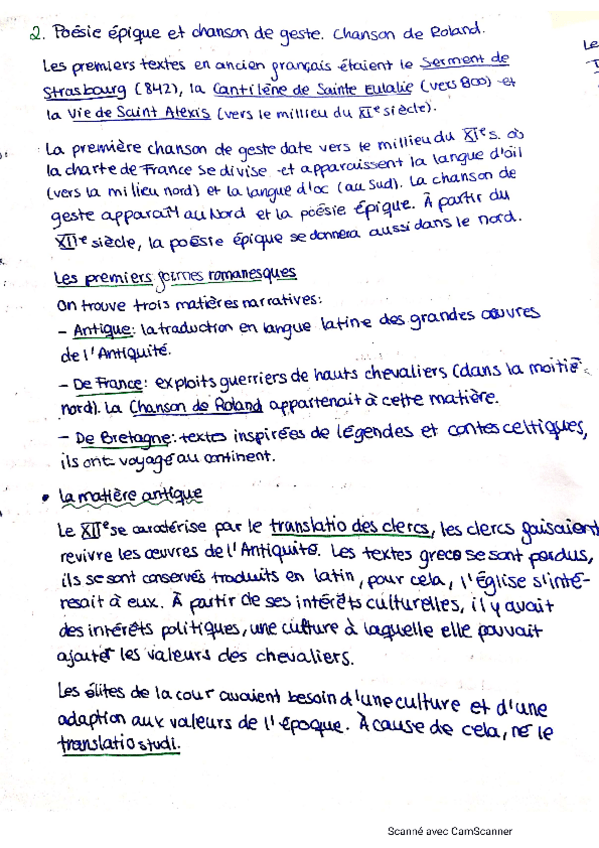 2. Poésie épique et chanson de geste. Chanson de Roland.
Les premiers textes en ancien français étaient le Serment de
Strasbourg (842), la Cantilène de Sainte Eulalie (vers 800) et
la Vie de Saint Alexis (vers le millieu du XIe siècle).
La première chanson de geste date vers le millieu du XIe s. où
la charte de France se divise et apparaissent la langue d'oïl
(vers la milieu nord) et la langue d'oc (au Sud). La chanson de
geste apparaît au Nord et la poésie épique. À partir du
XIIe siècle, la poésie épique se donnera aussi dans le nord.
Les premiers formes romanesques
On trouve trois matières narratives:
- Antique: la traduction en langue latine des grandes œuvres
de l'Antiquité.
- De France: exploits guerriers de hauts chevaliers (dans la moitié
nord). La Chanson de Roland appartenait à cette matière.
- De Bretagne: textes inspirées de légendes et contes celtiques,
ils ont voyagé au continent.
• la matière antique
Le XIIe se caractérise par le translatio des clercs, les clercs faisaient
revivre les œuvres de l'Antiquité. Les textes grecs se sont perdus,
ils se sont conservés traduits en latin, pour cela, l'Église s'inté-
resait à eux. À partir de ses intérêts culturelles, il y avait
des intérêts politiques, une culture à laquelle elle pouvait
ajouter les valeurs des chevaliers.
Les élites de la cour avaient besoin d'une culture et d'une
adaption aux valeurs de l'époque. À cause de cela, né le
translatio studi.
Le
Scanné avec CamScanner